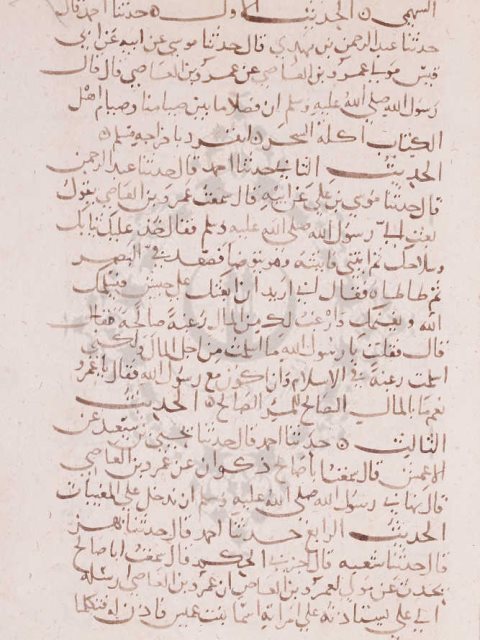 السهمي ○ الحديث الاول ○ حدثنا احمد قال
حدثنا عبد الرحمن بن مهدي قال حدثنا موسى عن ابيه عن ابي
قيس مولى عمرو بن العاصي عن عمرو بن العاصي قال قال
رسول الله صلى الله عليه وسلم ان فصلا ما بين صيامنا وصيام اهل
الكتاب اكلة السحر ○ انفرد باخراجه مسلم ○
الحديث الثاني حدثنا احمد قال حدثنا عبد الرحمن
قال حدثنا موسى بن علي عن ابيه قال سمعت عمرو بن العاصي يقول
بعث الي رسول الله صلى الله عليه وسلم فقال خذ عليك ثيابك
وسلاحك ثم ايتني فاتيته وهو يتوضا فصعد في البصر
ثم طاطاه فقال اني اريد ان ابعثك على جيش فيسلمك
الله ويغنمك وارغب لك من المال رغبة صالحة
قال فقلت يا رسول الله ما اسلمت من اجل المال ولكني
اسلمت رغبة في الاسلام وان اكون مع رسول الله فقال يا عمرو
نعم ما بالمال الصالح للمرء الصالح ○ الحديث
الثالث ○ حدثنا احمد قال حدثنا يحيى بن سعيد عن
الاعمش قال سمعت ابا صالح ذكوان عن عمرو بن العاصي
قال نهانا رسول الله صلى الله عليه وسلم ان ندخل على المغيبات
الحديث الرابع حدثنا احمد قال حدثنا بهز
قال حدثنا شعبه قال اخبرني الحكم قال سمعت ابا صالح
يحدث عن مولى لعمرو بن العاصي ان عمرو بن العاصي ارسله
الى علي يستاذنه على امراته اسما بنت عميس فاذن له فتكلما